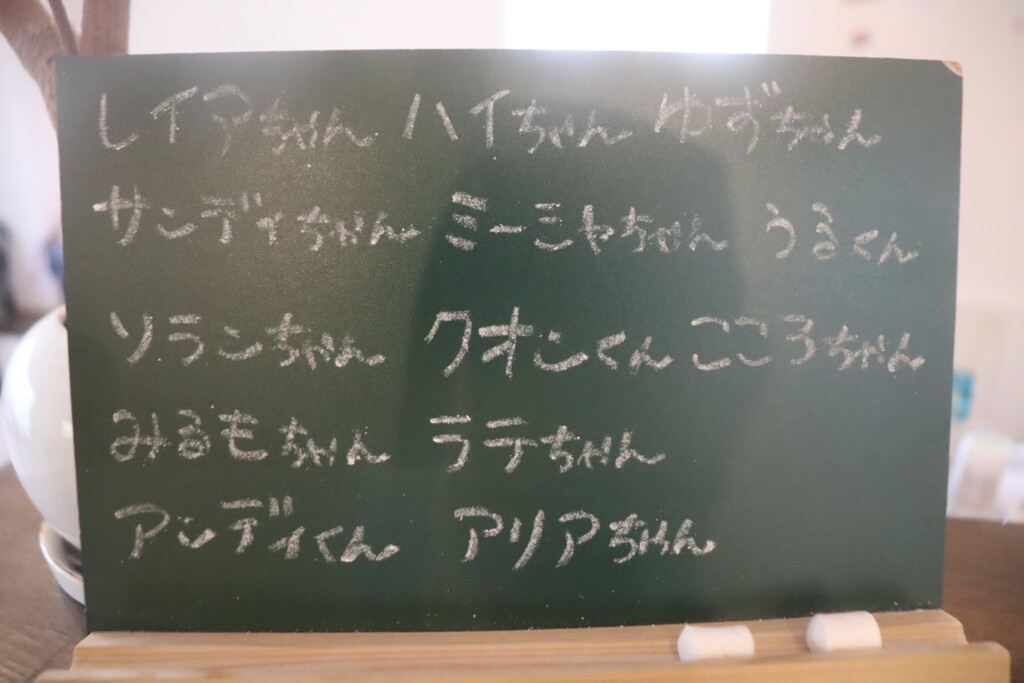 レイアちゃん ハイちゃん ゆずちゃん
サンディちゃん ミーミヤちゃん うるくん
ソランちゃん クオンくん こころちゃん
みるもちゃん ラテちゃん
アンディくん アリアちゃん